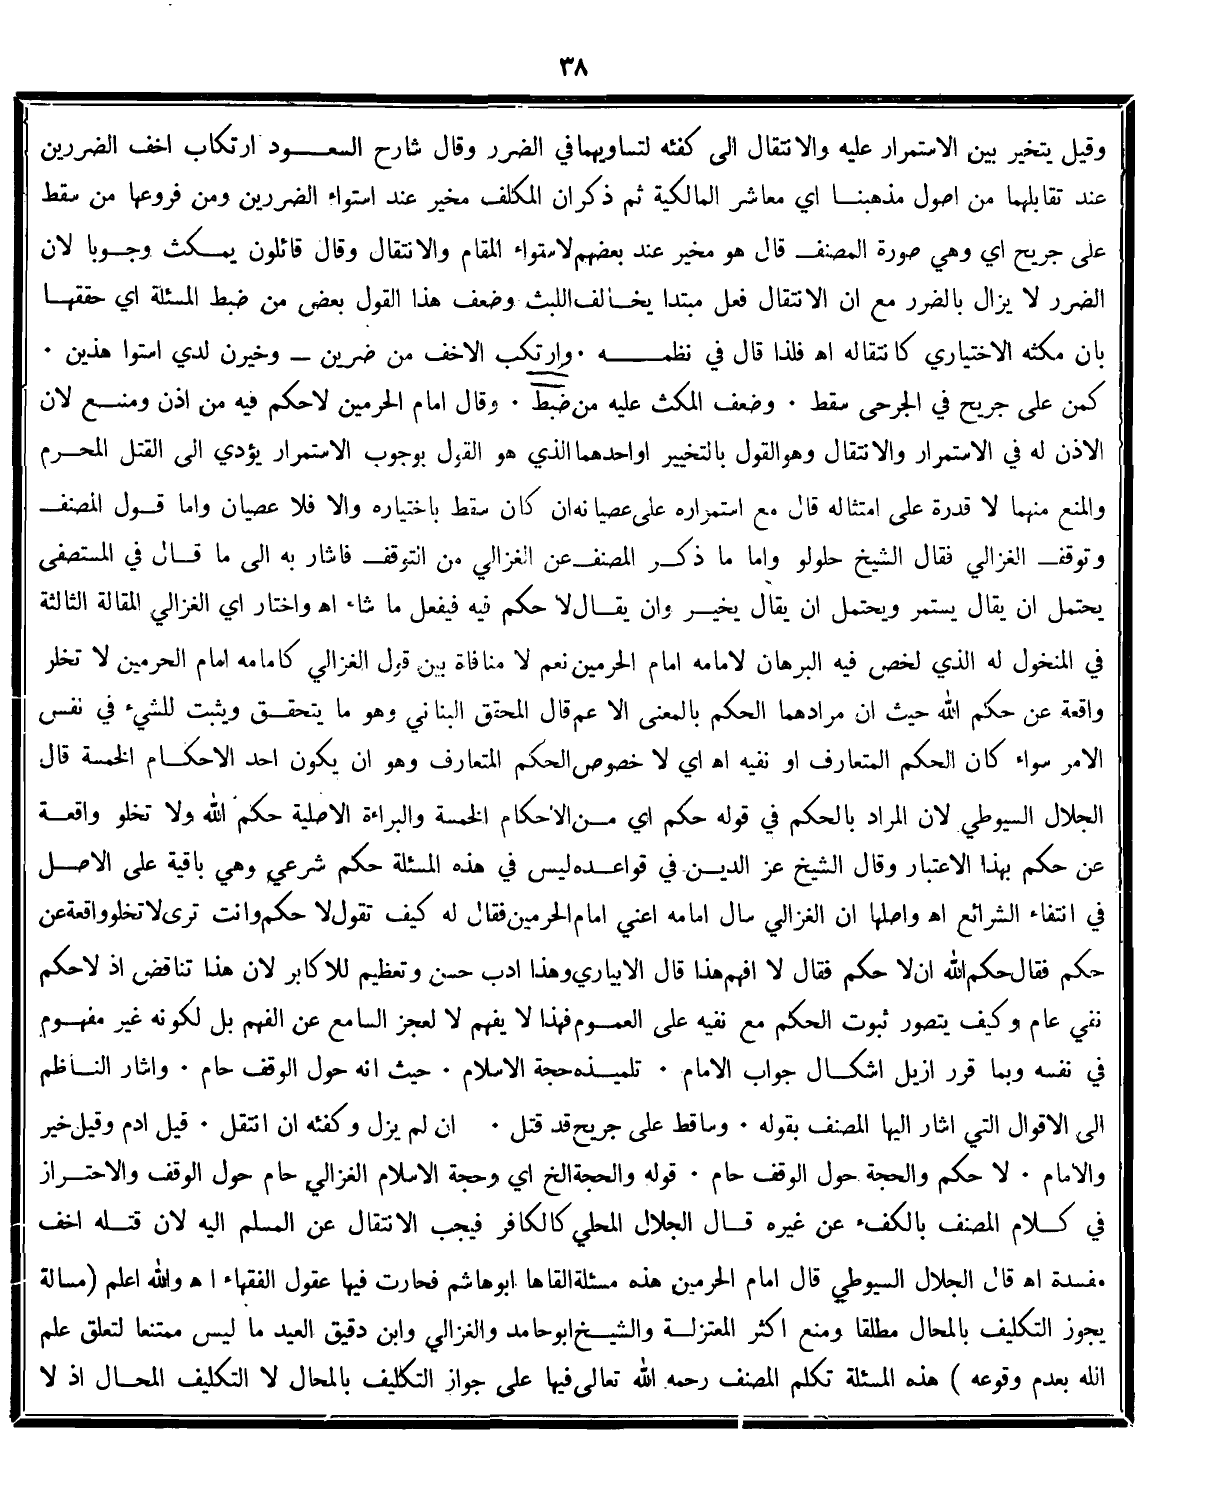 ٣٨
وقيل يتخير بين الاستمرار عليه والانتقال الى كفئه لتساويهما في الضرر وقال شارح السعود ارتكاب اخف الضررين
عند تقابلهما من اصول مذهبنا اي معاشر المالكية ثم ذكر ان المكلف مخير عند استواء الضررين ومن فروعها من سقط
على جريح اي وهي صورة المصنف قال هو مخير عند بعضهم لاستواء المقام والانتقال وقال قائلون يمكث وجوبا لان
الضرر لا يزال بالضرر مع ان الانتقال فعل مبتدا يخالف اللبث وضعف هذا القول بعض من ضبط المسئلة اي حققها
بان مكثه الاختياري كانتقاله اه فلذا قال في نظمه ٠ وارتكب الاخف من ضرين ــ وخيرن لدي استوا هذين ٠
كمن على جريح في الجرحى سقط ٠ وضعف المكث عليه من ضبط ٠ وقال امام الحرمين لاحكم فيه من اذن ومنع لان
الاذن له في الاستمرار والانتقال وهو القول بالتخيير او احدهما الذي هو القول بوجوب الاستمرار يؤدي الى القتل المحرم
والمنع منهما لا قدرة على امتثاله قال مع استمراره على عصيانه ان كان سقط باختياره والا فلا عصيان واما قول المصنف
وتوقف الغزالي فقال الشيخ حلولو واما ما ذكر المصنف عن الغزالي من التوقف فاشار به الى ما قال في المستصفى
يحتمل ان يقال يستمر ويحتمل ان يقال يخير وان يقال لا حكم فيه فيفعل ما شاء اه واختار اي الغزالي المقالة الثالثة
في المنخول له الذي لخص فيه البرهان لامامه امام الحرمين نعم لا منافاة بين قول الغزالي كامامه امام الحرمين لا تخلو
واقعة عن حكم الله حيث ان مرادهما الحكم بالمعنى الاعم قال المحقق البناني وهو ما يتحقق ويثبت للشيء في نفس
الامر سواء كان الحكم المتعارف او نفيه اه اي لا خصوص الحكم المتعارف وهو ان يكون احد الاحكام الخمسة قال
الجلال السيوطي لان المراد بالحكم في قوله حكم اي من الاحكام الخمسة والبراءة الاصلية حكم الله ولا تخلو واقعة
عن حكم بهذا الاعتبار وقال الشيخ عز الدين في قواعده ليس في هذه المسئلة حكم شرعي وهي باقية على الاصل
في انتفاء الشرائع اه واصلها ان الغزالي سال امامه اعني امام الحرمين فقال له كيف تقول لا حكم وانت ترى لا تخلو واقعة عن
حكم فقال حكم الله ان لا حكم فقال لا افهم هذا قال الابياري وهذا ادب حسن وتعظيم للاكابر لان هذا تناقض اذ لاحكم
نفي عام وكيف يتصور ثبوت الحكم مع نفيه على العموم فهذا لا يفهم لا لعجز السامع عن الفهم بل لكونه غير مفهوم
في نفسه وبما قرر ازيل اشكال جواب الامام ٠ تلميذه حجة الاسلام ٠ حيث انه حول الوقف حام ٠ واشار الناظم
الى الاقوال التي اشار اليها المصنف بقوله ٠ وساقط على جريح قد قتل ٠ ان لم يزل وكفئه ان انتقل ٠ قيل ادم وقيل خير
والامام ٠ لا حكم والحجة حول الوقف حام ٠ قوله والحجة الخ اي وحجة الاسلام الغزالي حام حول الوقف والاحتراز
في كلام المصنف بالكفء عن غيره قال الجلال المحلي كالكافر فيجب الانتقال عن المسلم اليه لان قتله اخف
مفسدة اه قال الجلال السيوطي قال امام الحرمين هذه مسئلة القاها ابوهاشم فحارت فيها عقول الفقهاء اه والله اعلم (مسالة
يجوز التكليف بالمحال مطلقا ومنع اكثر المعتزلة والشيخ ابو حامد والغزالي وابن دقيق العيد ما ليس ممتنعا لتعلق علم
الله بعدم وقوعه ) هذه المسئلة تكلم المصنف رحمه الله تعالى فيها على جواز التكليف بالمحال لا التكليف المحال اذ لا